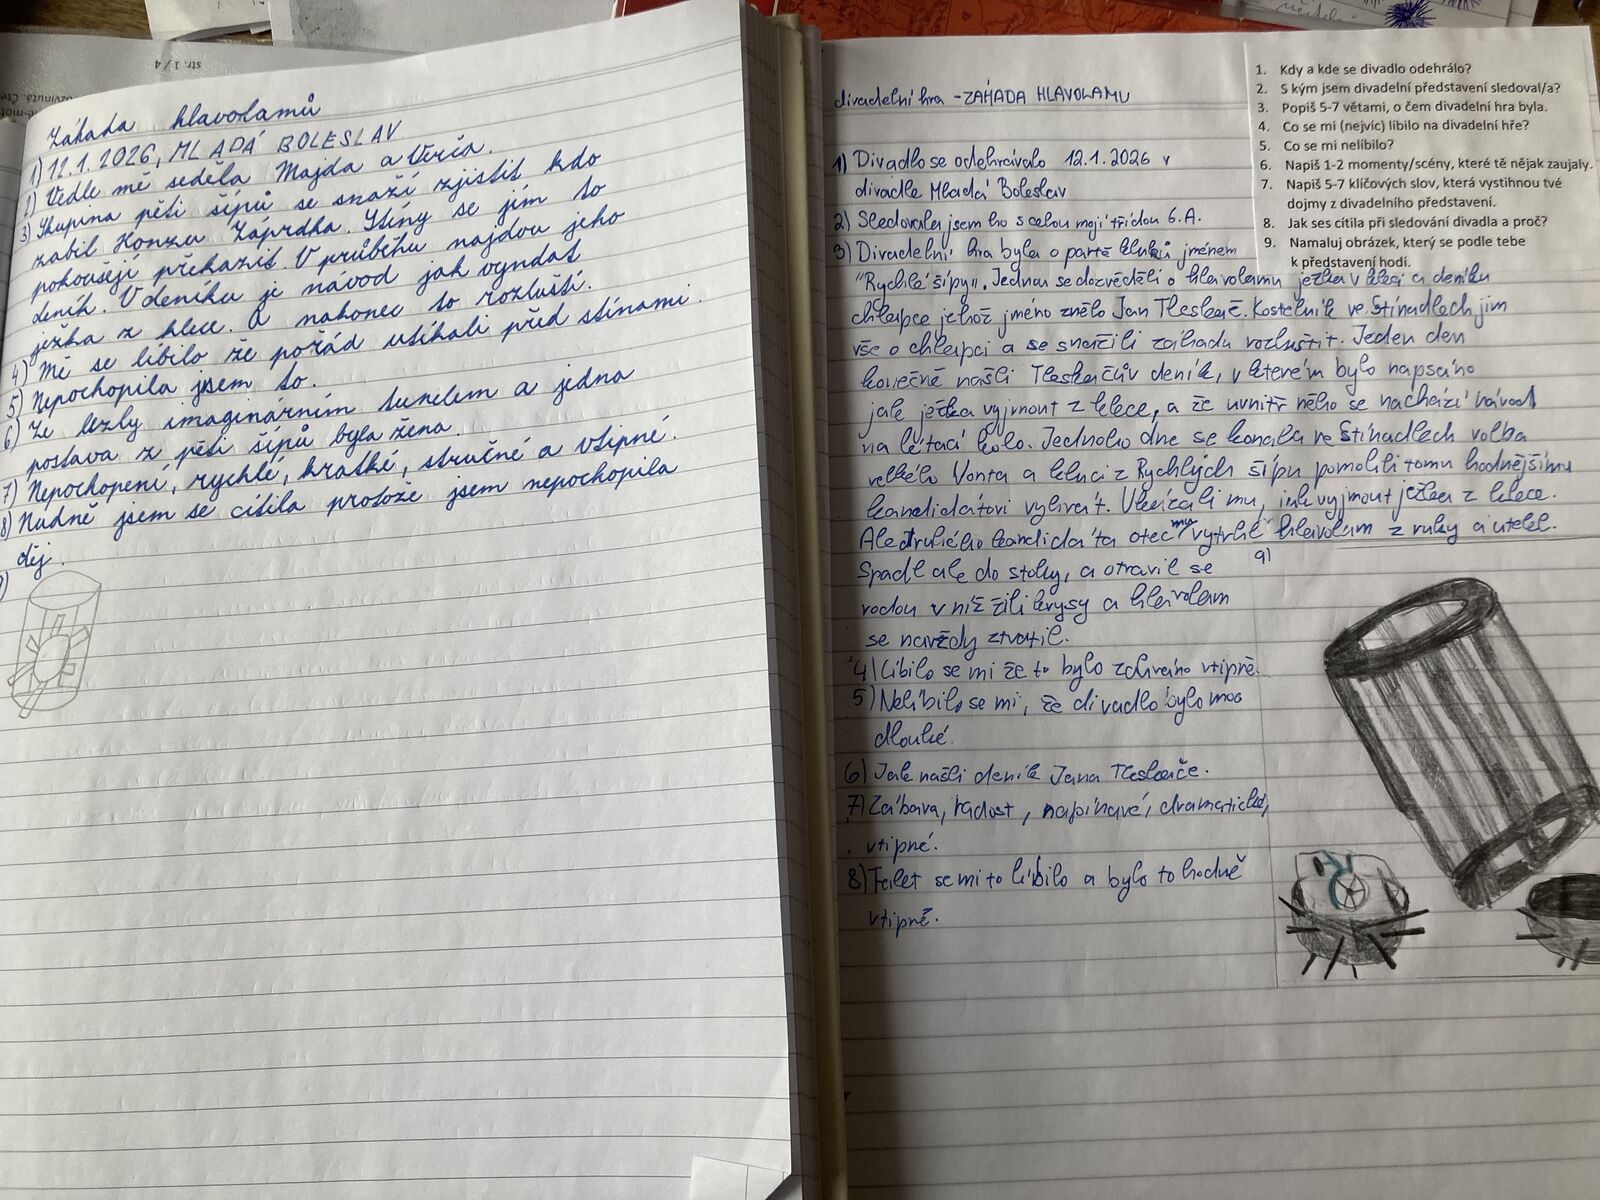 str. 1 / 4
Záhada hlavolamů
1) 12.1.2026, MLADÁ BOLESLAV
2) Vedle mě seděla Majda a Verča.
3) Skupina pěti šípů se snaží zjistit kdo
zabil Honzu Záprdka. Stíny se jím to
pokoušejí překazit. V průběhu najdou jeho
deník. V deníku je návod jak vyndat
ježka z klece. A nakonec to rozluští.
4) Mě se líbilo že pořád utíkali před stínami.
5) Nepochopila jsem to.
6) Ze lezly imaginárním tunelem a jedna
postava z pěti šípů byla žena.
7) Nepochopení, rychlé, krátké, stručné a vtipné.
8) Nudně jsem se cítila protože jsem nepochopila
děj.
divadelní hra - ZÁHADA HLAVOLAMU
1) Divadlo se odehrávalo 12.1.2026 v
divadle Mladá Boleslav
2) Sledovala jsem ho s celou mojí třídou 6.A.
3) Divadelní hra byla o partě kluků jménem
"Rychlé šípy". Jednou se dozvěděli o hlavolamu ježka v kleci a deníku
chlapce jehož jméno znělo Jan Tleskač. Kostelník ve Stínadlech jim
vše o chlapci a se snažili záhadu rozluštit. Jeden den
konečně našli Tleskačův deník, v kterém bylo napsáno
jak ježka vyjmout z klece, a že uvnitř něho se nachází návod
na létací kolo. Jednoho dne se konala ve Stínadlech volba
velkého Vonta a kluci z Rychlých šípů pomohli tomu hodnějšímu
kandidátovi vyhrát. Ukázali mu, jak vyjmout ježka z klece.
Ale druhého kandidáta otec mu vytrhl hlavolam z ruky a utekl.
Spadl ale do stoky, a otrávil se
vodou v níž žili krysy a hlavolam
se navždy ztratil.
4) Líbilo se mi že to bylo zahráno vtipně.
5) Nelíbilo se mi, že divadlo bylo moc
dlouhé.
6) Jak našli deník Jana Tleskače.
7) Zábava, radost, napínavé, dramatické,
vtipné.
8) Fajet se mi to líbilo a bylo to hodně
vtipné.
9)
1. Kdy a kde se divadlo odehrálo?
2. S kým jsem divadelní představení sledoval/a?
3. Popiš 5-7 větami, o čem divadelní hra byla.
4. Co se mi (nejvíc) líbilo na divadelní hře?
5. Co se mi nelíbilo?
6. Napiš 1-2 momenty/scény, které tě nějak zaujaly.
7. Napiš 5-7 klíčových slov, která vystihnou tvé
dojmy z divadelního představení.
8. Jak ses cítila při sledování divadla a proč?
9. Namaluj obrázek, který se podle tebe
k představení hodí.